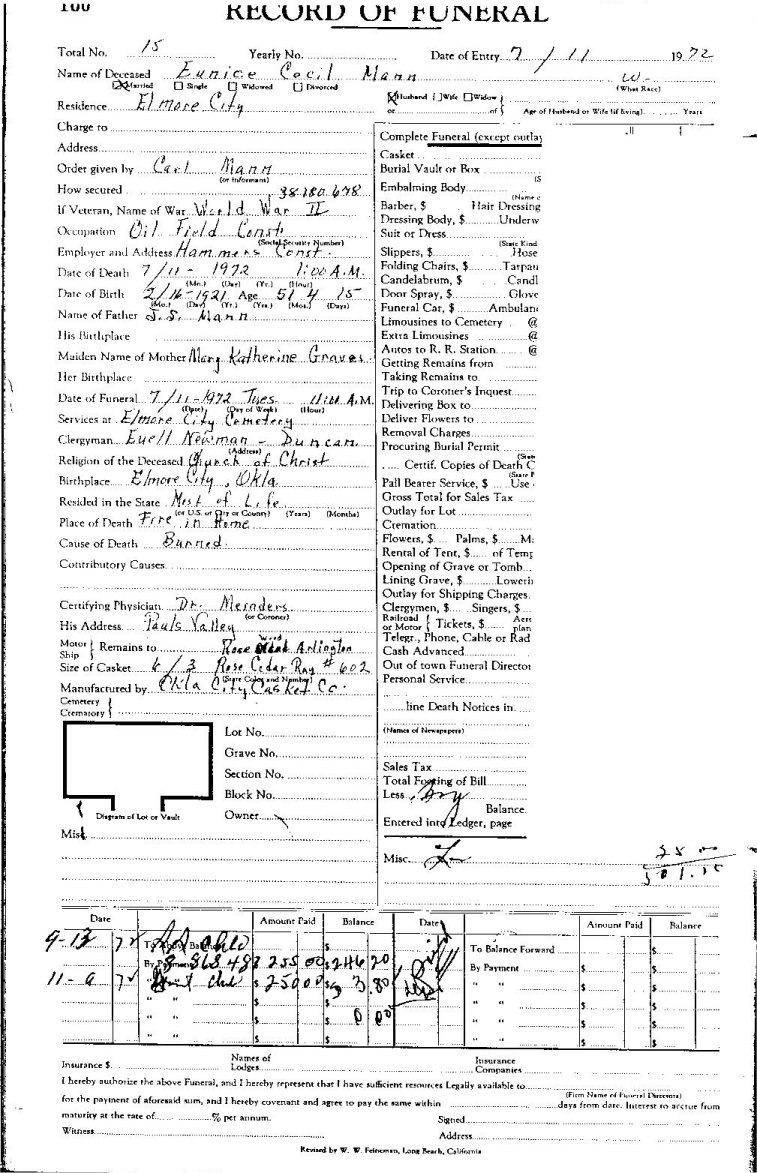 100
RECORD OF FUNERAL
Total No. 15 Yearly No. Date of Entry 7 / 11 / 1972
Name of Deceased Eunice Cecil Mann W-
Married Single Widowed Divorced (What Race)
Residence Elmore City Husband Wife Widow or of Age of Husband or Wife (if living) Years
Charge to
Address
Order given by Carl Mann
(or Informant)
How secured 38.180.678
If Veteran, Name of War World War II
Occupation Oil Field Const.
(Social Security Number)
Employer and Address Hammers Const.
Date of Death 7/11 - 1972 1:00 A.M.
(Mo.) (Day) (Yr.) (Hour)
Date of Birth 2/16-1921 Age 51 4 15
(Mo.) (Day) (Yr.) (Yrs.) (Mos.) (Days)
Name of Father J.S. Mann
His Birthplace
Maiden Name of Mother Mary Katherine Graves
Her Birthplace
Date of Funeral 7/11-1972 Tues. 11:00 A.M.
(Date) (Day of Week) (Hour)
Services at Elmore City Cemetery
Clergyman Euell Newman - Duncan
(Address)
Religion of the Deceased Church of Christ
Birthplace Elmore City, Okla
Resided in the State Most of Life
(or U.S. or City or County) (Years) (Months)
Place of Death Fire in Home
Cause of Death Burned
Contributory Causes
Certifying Physician Dr. Meinders
(or Coroner)
His Address Pauls Valley
Motor Ship Remains to Rose Wood Arlington
Size of Casket 6/3 Rose Cedar Ray # 602
(State Color and Number)
Manufactured by Okla City Casket Co.
Cemetery
Crematory
Lot No.
Grave No.
Section No.
Block No.
Owner
Diagram of Lot or Vault
Misc.
Complete Funeral (except outlay
Casket
Burial Vault or Box
(S
Embalming Body
(Name o
Barber, $ Hair Dressing
Dressing Body, $ Underw
Suit or Dress
(State Kind
Slippers, $ Hose
Folding Chairs, $ Tarpau
Candelabrum, $ Candl
Door Spray, $ Glove
Funeral Car, $ Ambulanc
Limousines to Cemetery @
Extra Limousines @
Autos to R. R. Station @
Getting Remains from
Taking Remains to
Trip to Coroner's Inquest
Delivering Box to
Deliver Flowers to
Removal Charges
Procuring Burial Permit
(State
Certif. Copies of Death C
(State F
Pall Bearer Service, $ Use
Gross Total for Sales Tax
Outlay for Lot
Cremation
Flowers, $ Palms, $ M
Rental of Tent, $ of Temp
Opening of Grave or Tomb
Lining Grave, $ Lowerin
Outlay for Shipping Charges
Clergymen, $ Singers, $
Railroad or Motor Tickets, $ Aero plan
Telegr., Phone, Cable or Rad
Cash Advanced
Out of town Funeral Director
Personal Service
line Death Notices in
(Names of Newspapers)
Sales Tax
Total Footing of Bill
Less
Balance
Entered into Ledger, page
Misc.
Date Amount Paid Balance Date Amount Paid Balance
9-13 72 To Above Balance To Balance Forward $
By Payment 868.48 $ 255 00 246 20 By Payment $ $
11-9 72 $ 250 00 $ 3.80 " " $ $
" " $ $ 0 00 " " $ $
" " $ $ " " $ $
Insurance $ Names of Lodges Insurance Companies
I hereby authorize the above Funeral, and I hereby represent that I have sufficient resources Legally available to
(Firm Name of Funeral Directors)
for the payment of aforesaid sum, and I hereby covenant and agree to pay the same within days from date. Interest to accrue from
maturity at the rate of % per annum. Signed
Witness Address
Revised by W. W. Feineman, Long Beach, California